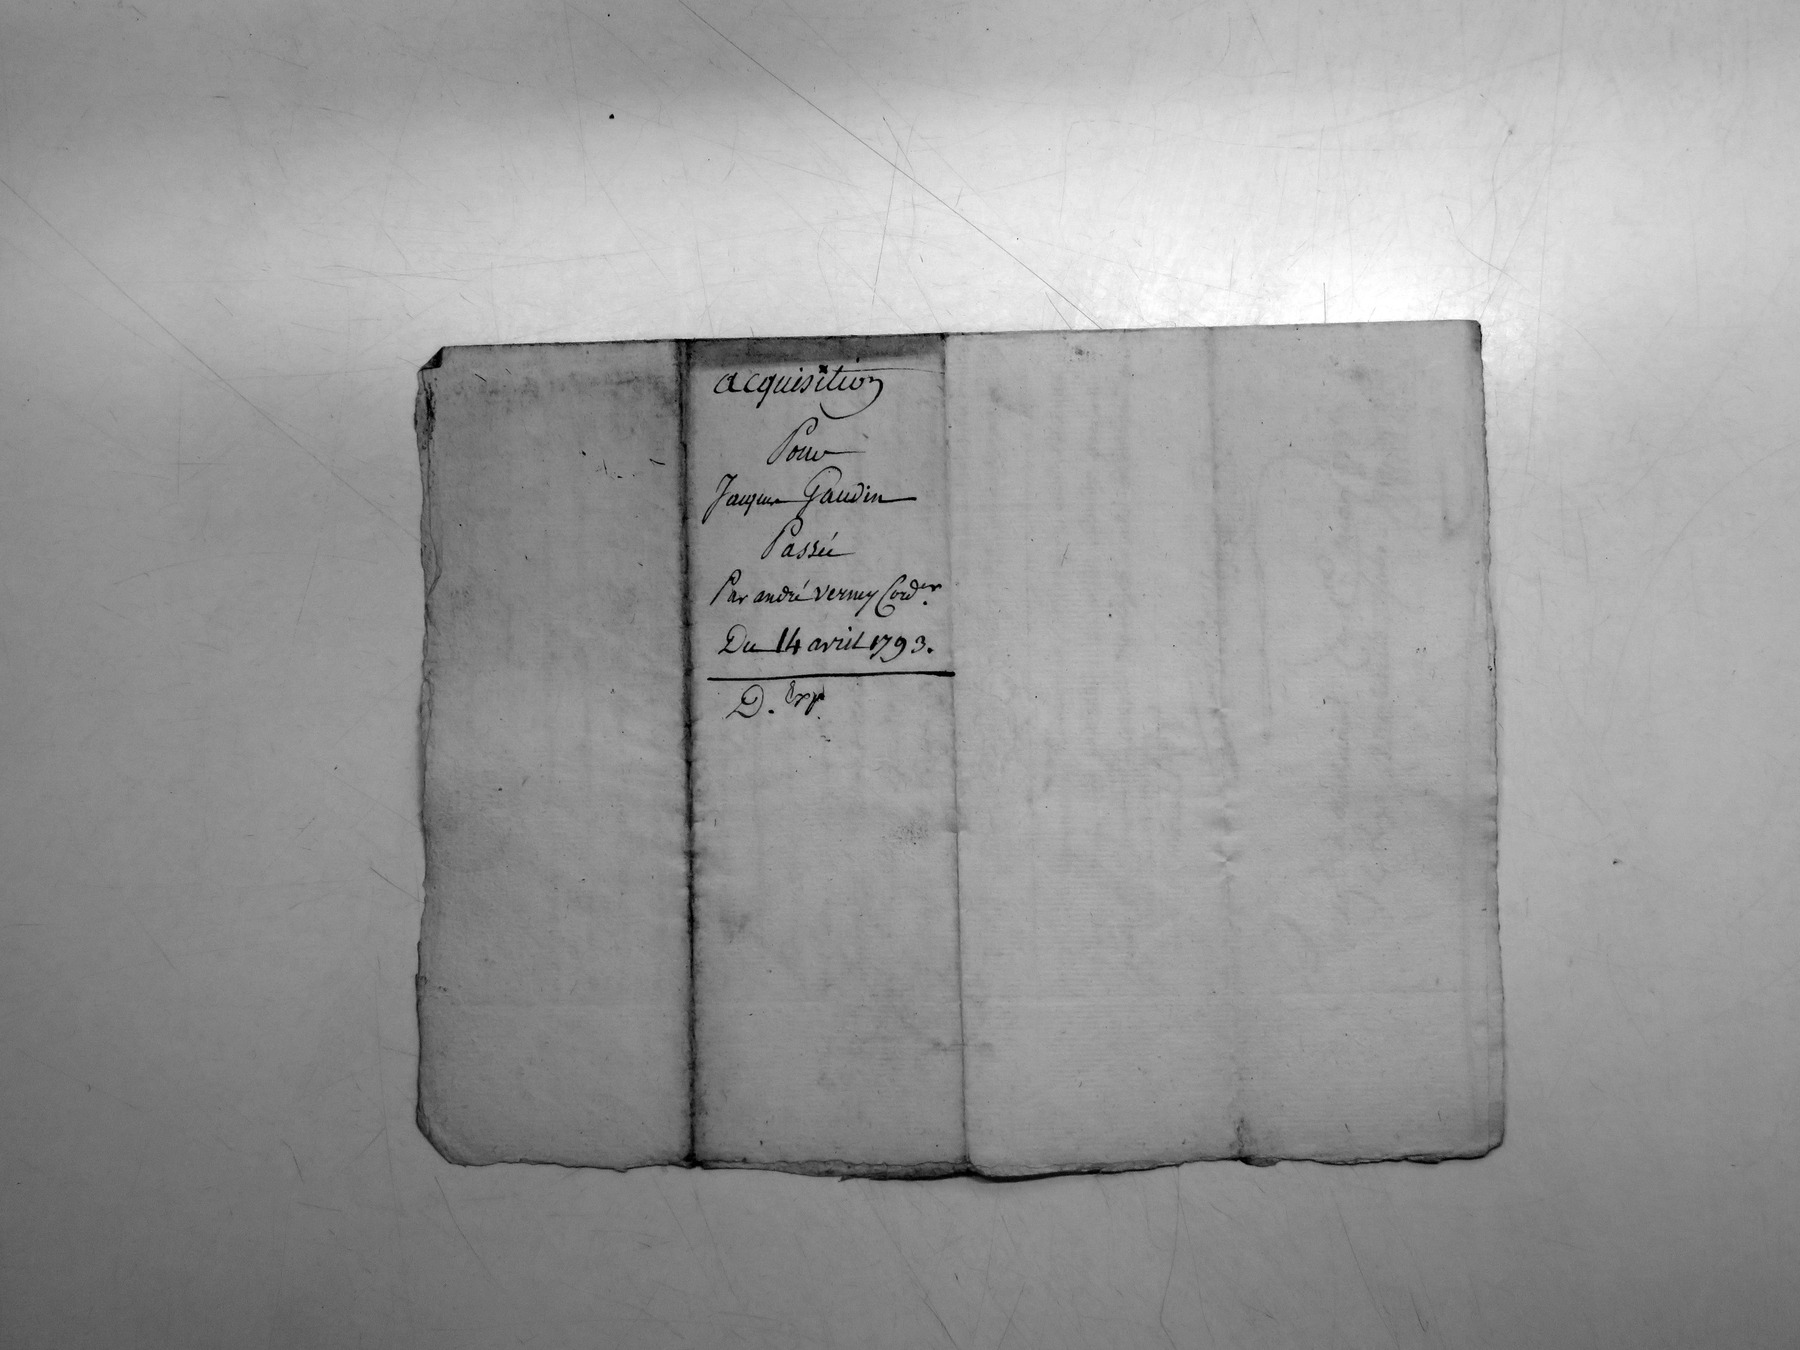 acquisition
Pour
Jacques Gaudin
Passée
Par andré verney Cord.er
Du 14 avril 1793.
D. Exp.